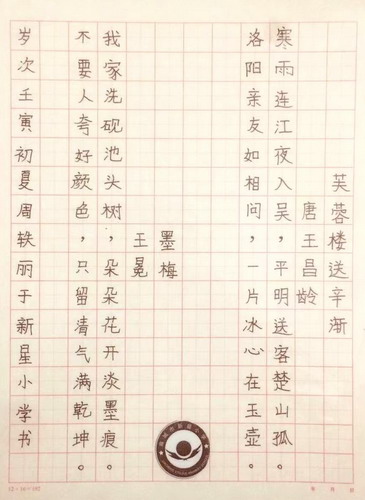 芙蓉楼送辛渐
唐王昌龄
寒雨连江夜入吴，平明送客楚山孤。
洛阳亲友如相问，一片冰心在玉壶。
墨梅
王冕
我家洗砚池头树，朵朵花开淡墨痕。
不要人夸好颜色，只留清气满乾坤。
岁次壬寅初夏周轶丽于新星小学书
年 月 日